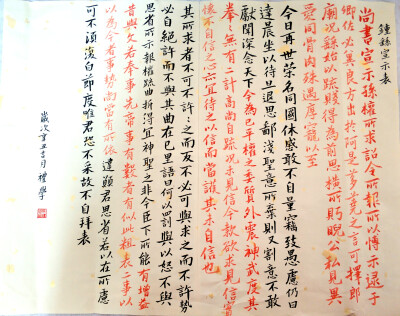 鍾繇宣示表
尚書宣示孫權所求詔令所報所以博示逮于
卿佐必冀良方出於阿是芻蕘之言可擇郎
廟況繇始以疏賤得為前恩橫所盱睨公私見異
愛同骨肉殊遇厚寵以至
今日再世榮名同國休慼敢不自量竊致愚慮仍日
達晨坐以待旦退思鄙淺聖意所棄則又割意不敢
獻聞深念天下今為已平權之委質外震神武度其
拳拳無有二計高尚自疏況未見信今款欲求見信實
懷不自信之心亦宜待之以信而當護其未自信也
其所求者不可不許之而反不必可與求之而不許勢
必自絕許而不與其曲在己里語曰何以罰與以怒不與
思省所示報權疏曲折得宜神聖之非今臣下所能有增益
昔與文若奉事先帝事有數者有似此粗表二事以
以為今者事勢尚當有所依違願君思省若以在所慮
可不須復白節度唯君恐不采故不自拜表
歲次辛丑月禮學